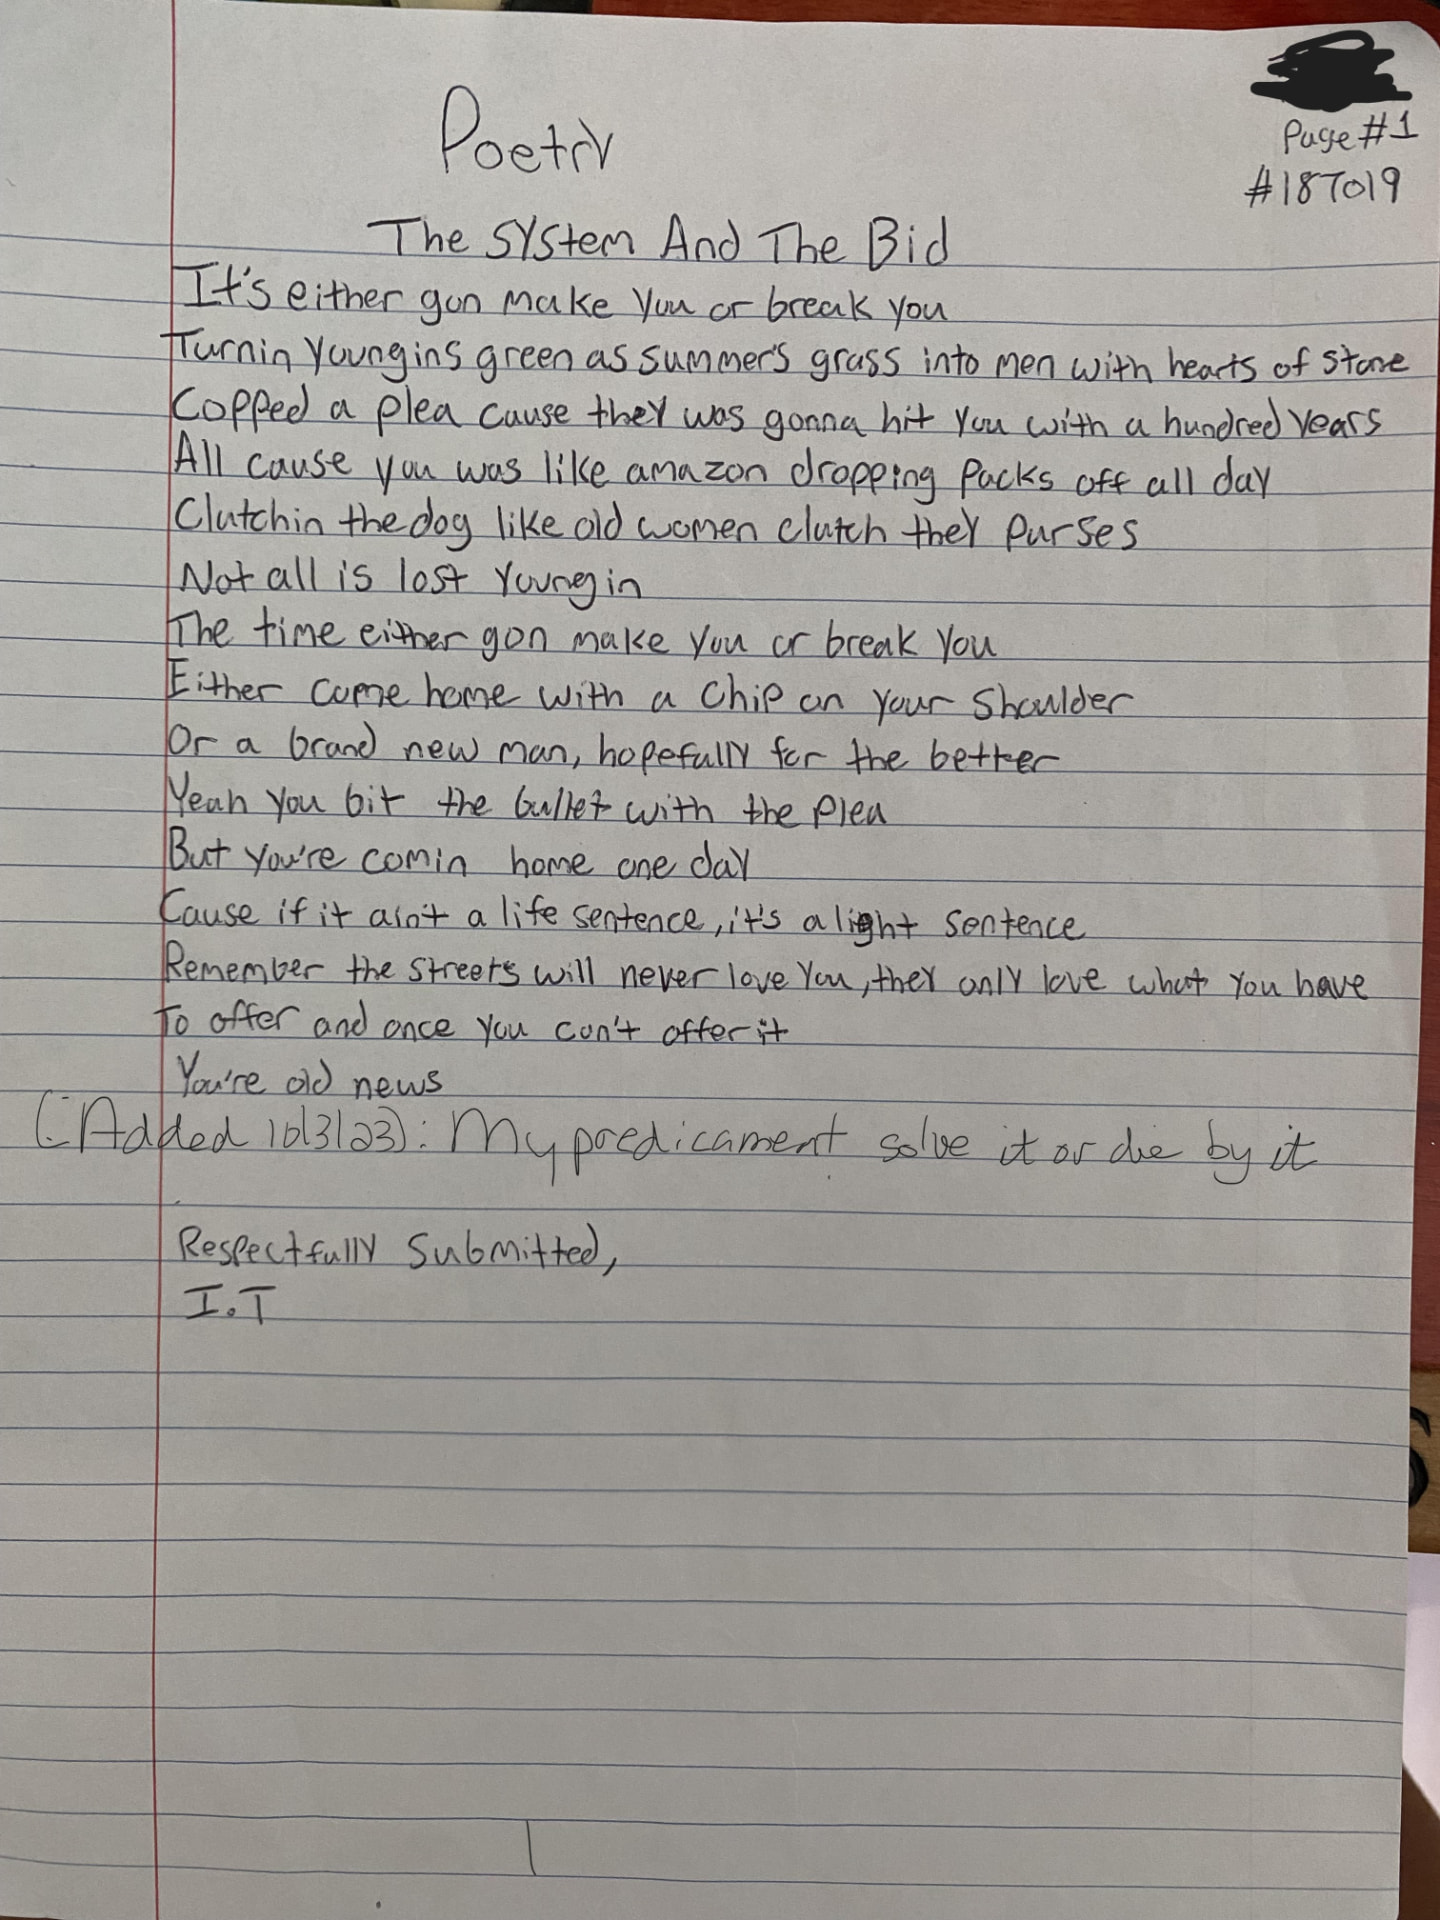 Page #1
#187019
Poetry
The System And The Bid
It's either gon make you or break you
Turnin youngins green as summer's grass into men with hearts of stone
Copped a plea cause they was gonna hit you with a hundred years
All cause you was like amazon dropping packs off all day
Clutchin the dog like old women clutch they purses
Not all is lost youngin
The time either gon make you or break you
Either come home with a chip on your shoulder
Or a brand new man, hopefully for the better
Yeah you bit the bullet with the plea
But you're comin home one day
Cause if it ain't a life sentence, it's a light sentence
Remember the streets will never love you, they only love what you have
To offer and once you can't offer it
You're old news
(Added 10/3/23): My predicament solve it or die by it
Respectfully Submitted,
I.T